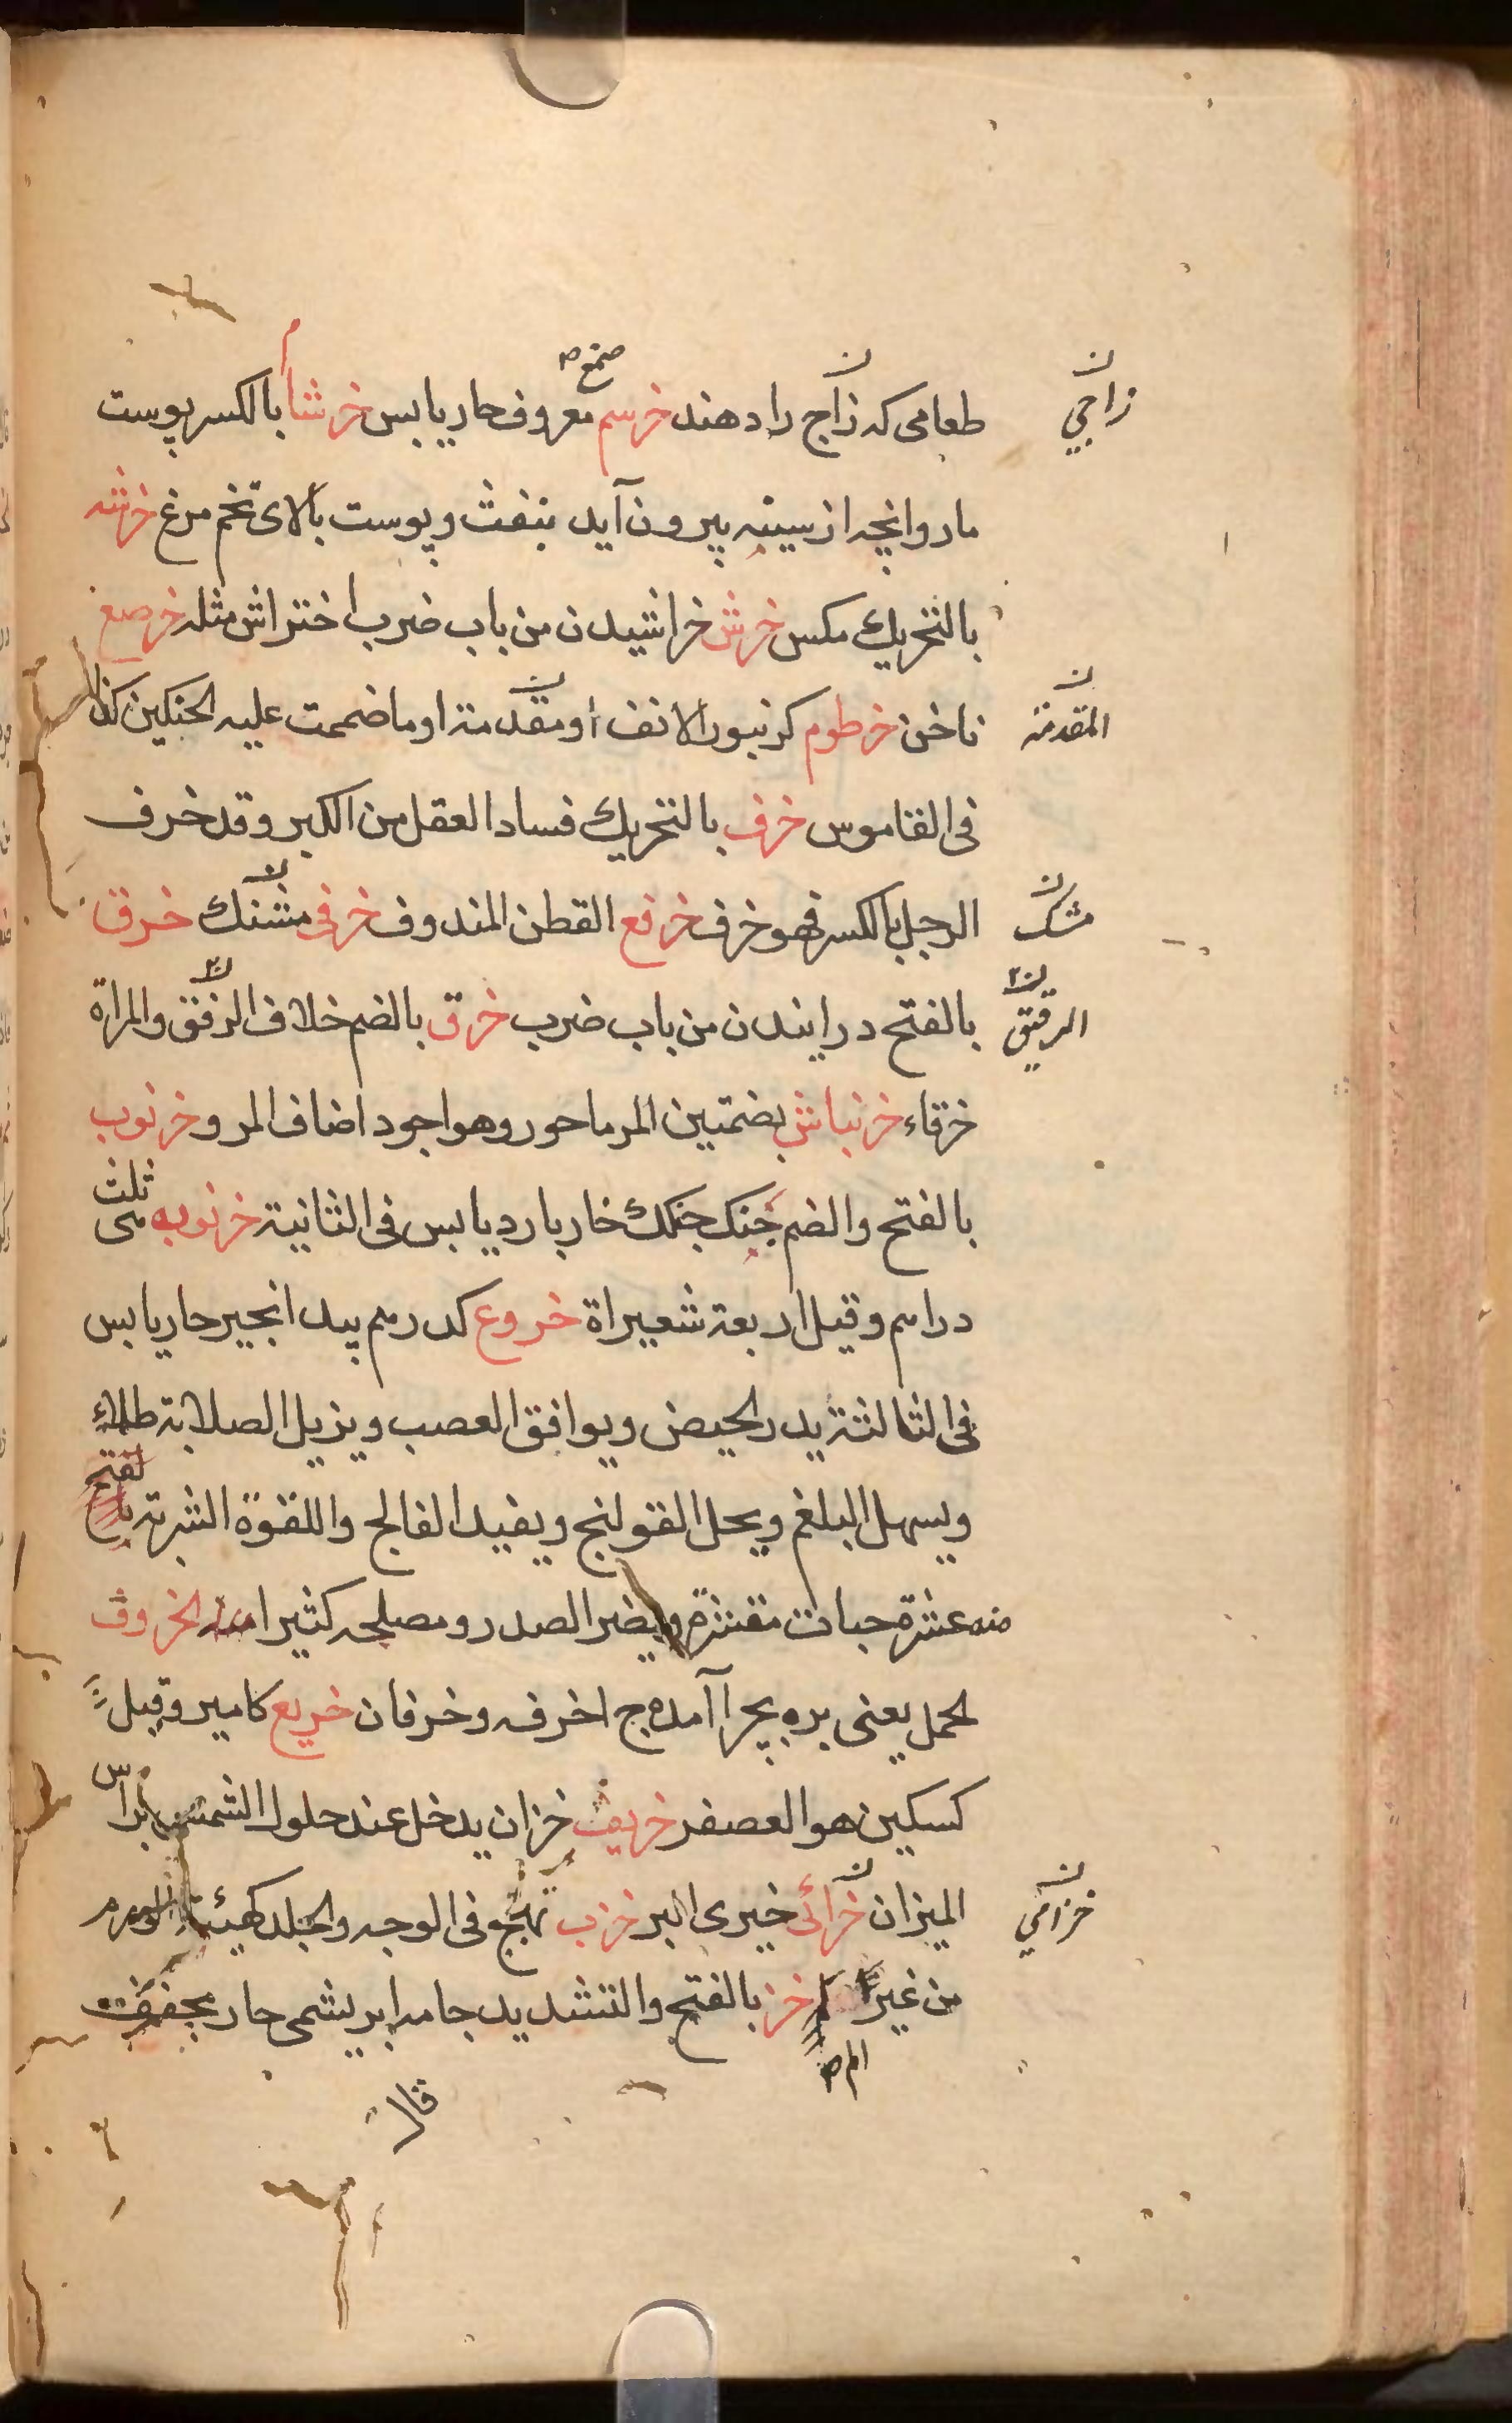 طعامی که زاج را دهند خرسم معروف حار یابس خرشاء بالکسر پوست
صمغ ص
زاجي
مار وانچه از سینه بیرون آید بنفث و پوست بالای تخم مرغ خرشه
بالتحریك مکس خرش خراشیدن من باب ضرب اختراش مثله خرصع
ناخن خرطوم کزنبور الانف او مقدمة او ما ضممت علیه الحنکین کذا
المقدمة
فی القاموس خرف بالتحریك فساد العقل من الکبر وقد خرف
الرجل بالکسر فهو خرف خرفع القطن المندوف خرفی مشنك خرق
مشک
بالفتح درانیدن من باب ضرب خرق بالضم خلاف الرفق والمراة
الرقیق
خرقاء خرنباش بضمتین المرماحور وهو اجود اضاف المرو خرنوب
بالفتح والضم جنک جنکك خار بارد یابس فی الثانیة خرنوبه ثلث می
دراهم وقیل اربعة شعیراة خروع کدرهم بید انجیر حار یابس
فی الثالثة یدر الحیض ویوافق العصب ویزیل الصلابة طلاء
ویسهل البلغم ویحل القولنج ویفید الفالج واللقوة الشربة
منه عشرة حبات مقشرة ویضر الصدر ومصلحه کثیرا الخروف
لحمل یعنی بره بچرا آمده ج اخرفه وخرفان خریع کامیر وقیل
کسکین هو العصفر خریف خزان یدخل عند حلول الشمس براس
المیزان خزائی خیری البر خزب تهیج فی الوجه والجلد کهیئة الورم
خزامي
من غیر الم خز بالفتح والتشدید جامه ابریشمی حار مجفف
الم ص
قال